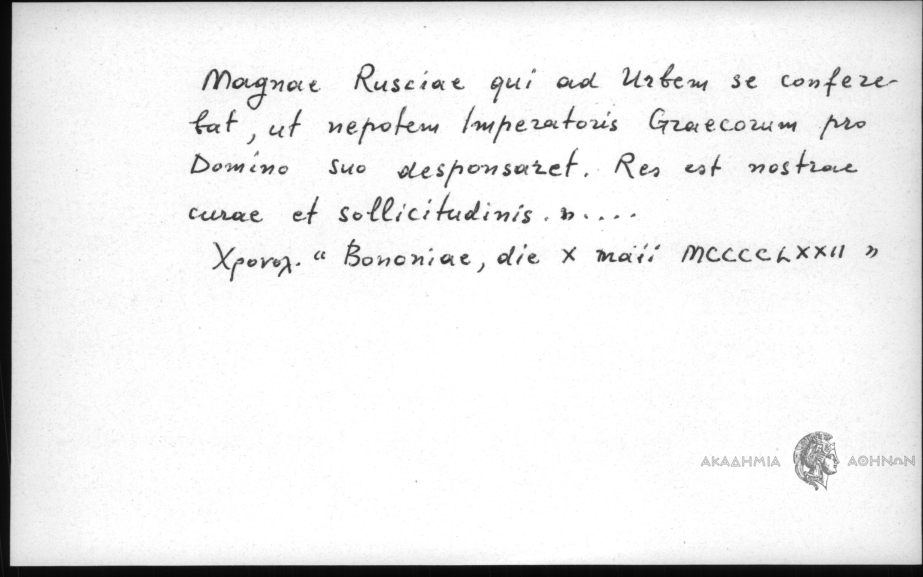 Magnae Rusciae qui ad Urbem se confere-
bat, ut nepotem Imperatoris Graecorum pro
Domino suo desponsaret. Res est nostrae
curae et sollicitudinis.»....
Χρονολ. “ Bononiae, die X maii MCCCCLXXII ”
ΑΚΑΔΗΜΙΑ ΑΘΗΝΩΝ